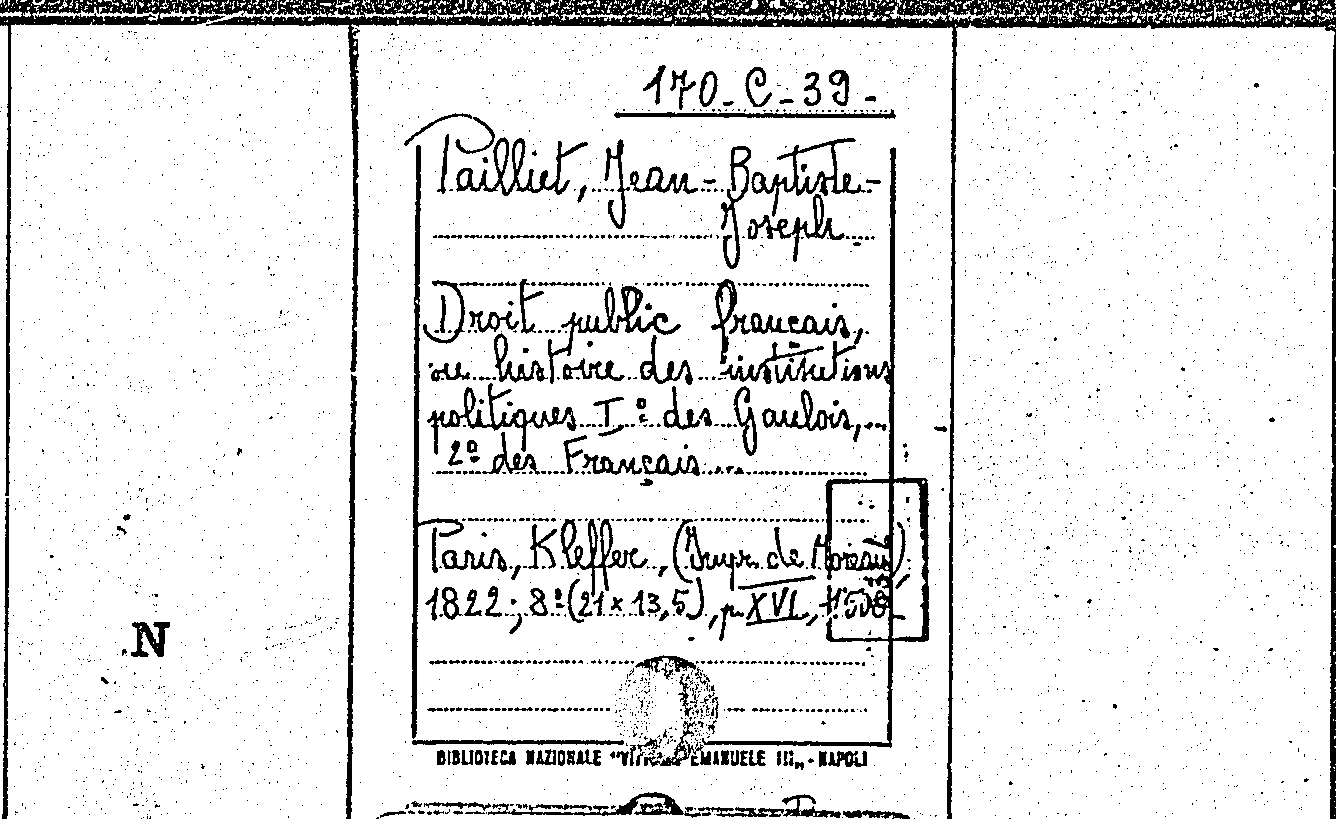 170-C-39-
Pailliet, Jean-Baptiste-
Joseph.
Droit public français,
ou histoire des institutions
politiques I° des Gaulois,...
2° des Français...
Paris, Kleffer, (Impr. de Moreau),
1822; 8° (21x13,5), p. XVI,
N
BIBLIOTECA NAZIONALE "VITTORIO EMANUELE III„ - NAPOLI